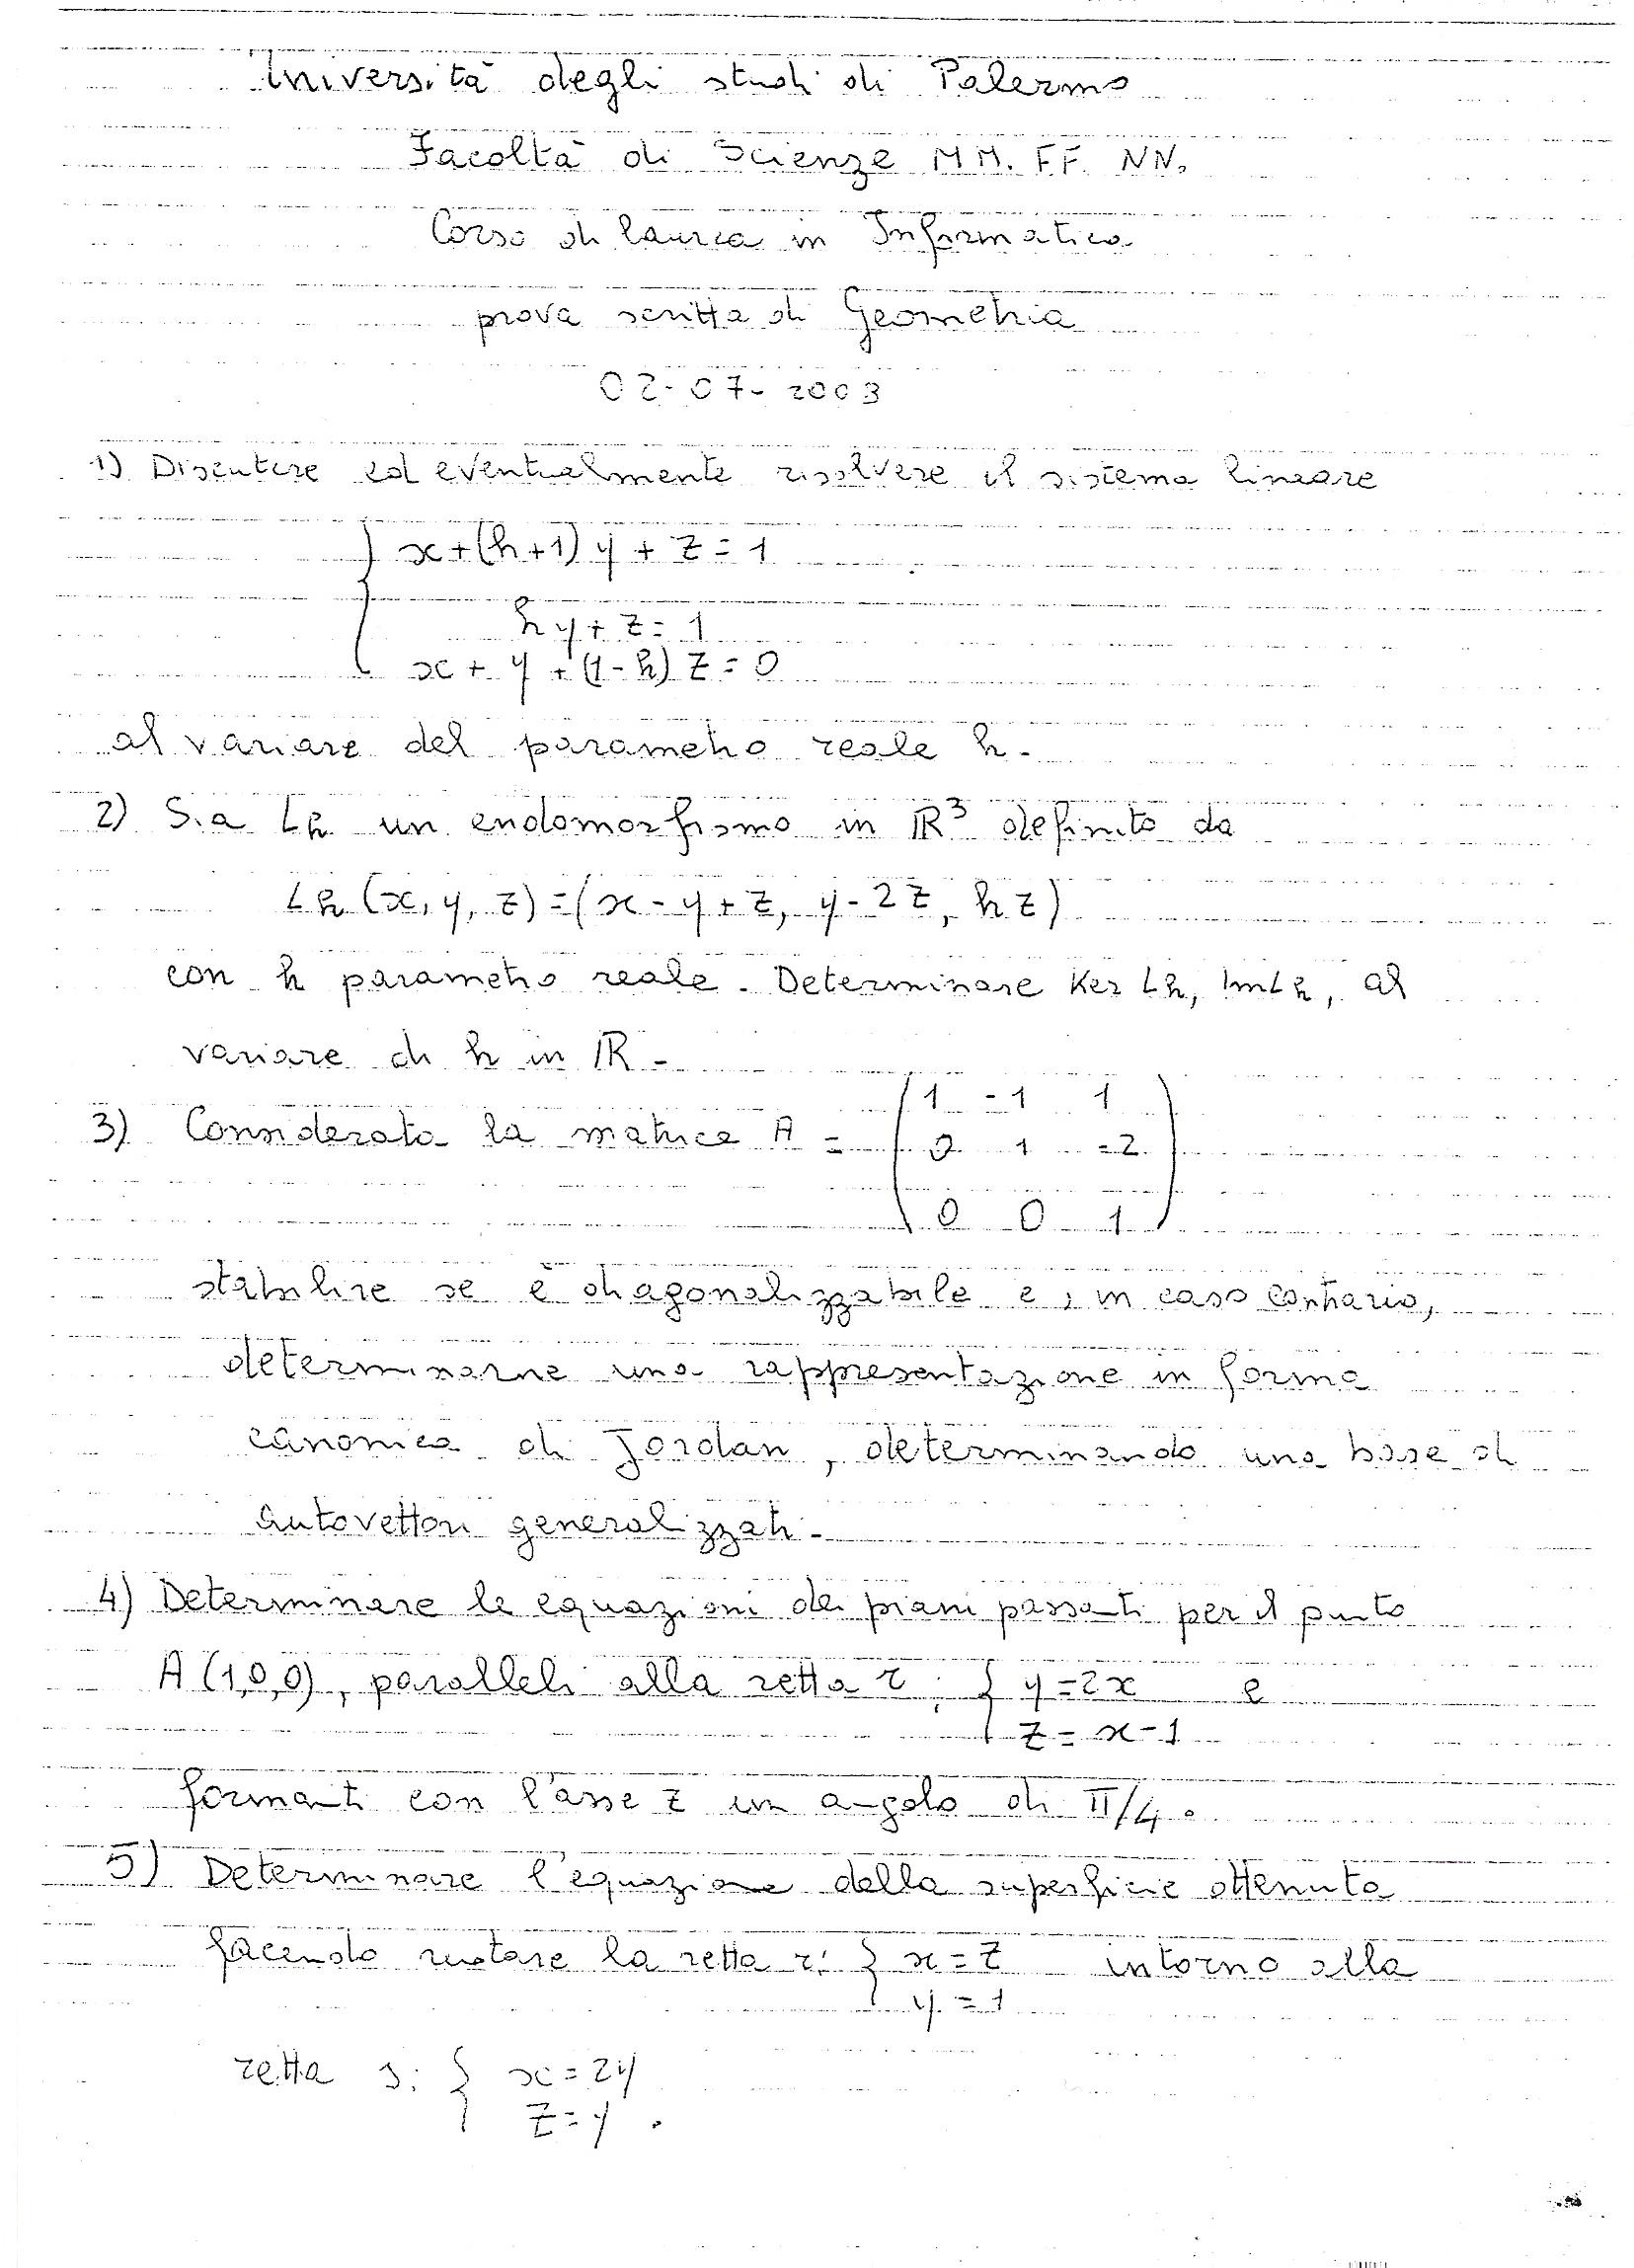 Università degli studi di Palermo
Facoltà di Scienze MM. FF. NN.
Corso di laurea in Informatica
prova scritta di Geometria
02-07-2003
1) Discutere ed eventualmente risolvere il sistema lineare
{ x+(h+1)y+z=1
hy+z=1
x+y+(1-h)z=0
al variare del parametro reale h.
2) Sia Lh un endomorfismo in ℝ³ definito da
Lh(x,y,z)=(x-y+z, y-2z, hz)
con h parametro reale. Determinare Ker Lh, Im Lh, al
variare di h in ℝ.
3) Considerata la matrice A = ( 1 -1 1
0 1 -2
0 0 1 )
stabilire se è diagonalizzabile e, in caso contrario,
determinarne una rappresentazione in forma
canonica di Jordan, determinando una base di
autovettori generalizzati.
4) Determinare le equazioni dei piani passanti per il punto
A(1,0,0), paralleli alla retta r: { y=2x e
z=x-1
formanti con l'asse z un angolo di π/4.
5) Determinare l'equazione della superficie ottenuta
facendo ruotare la retta r: { x=z intorno alla
y=1
retta s: { x=2y
z=y.